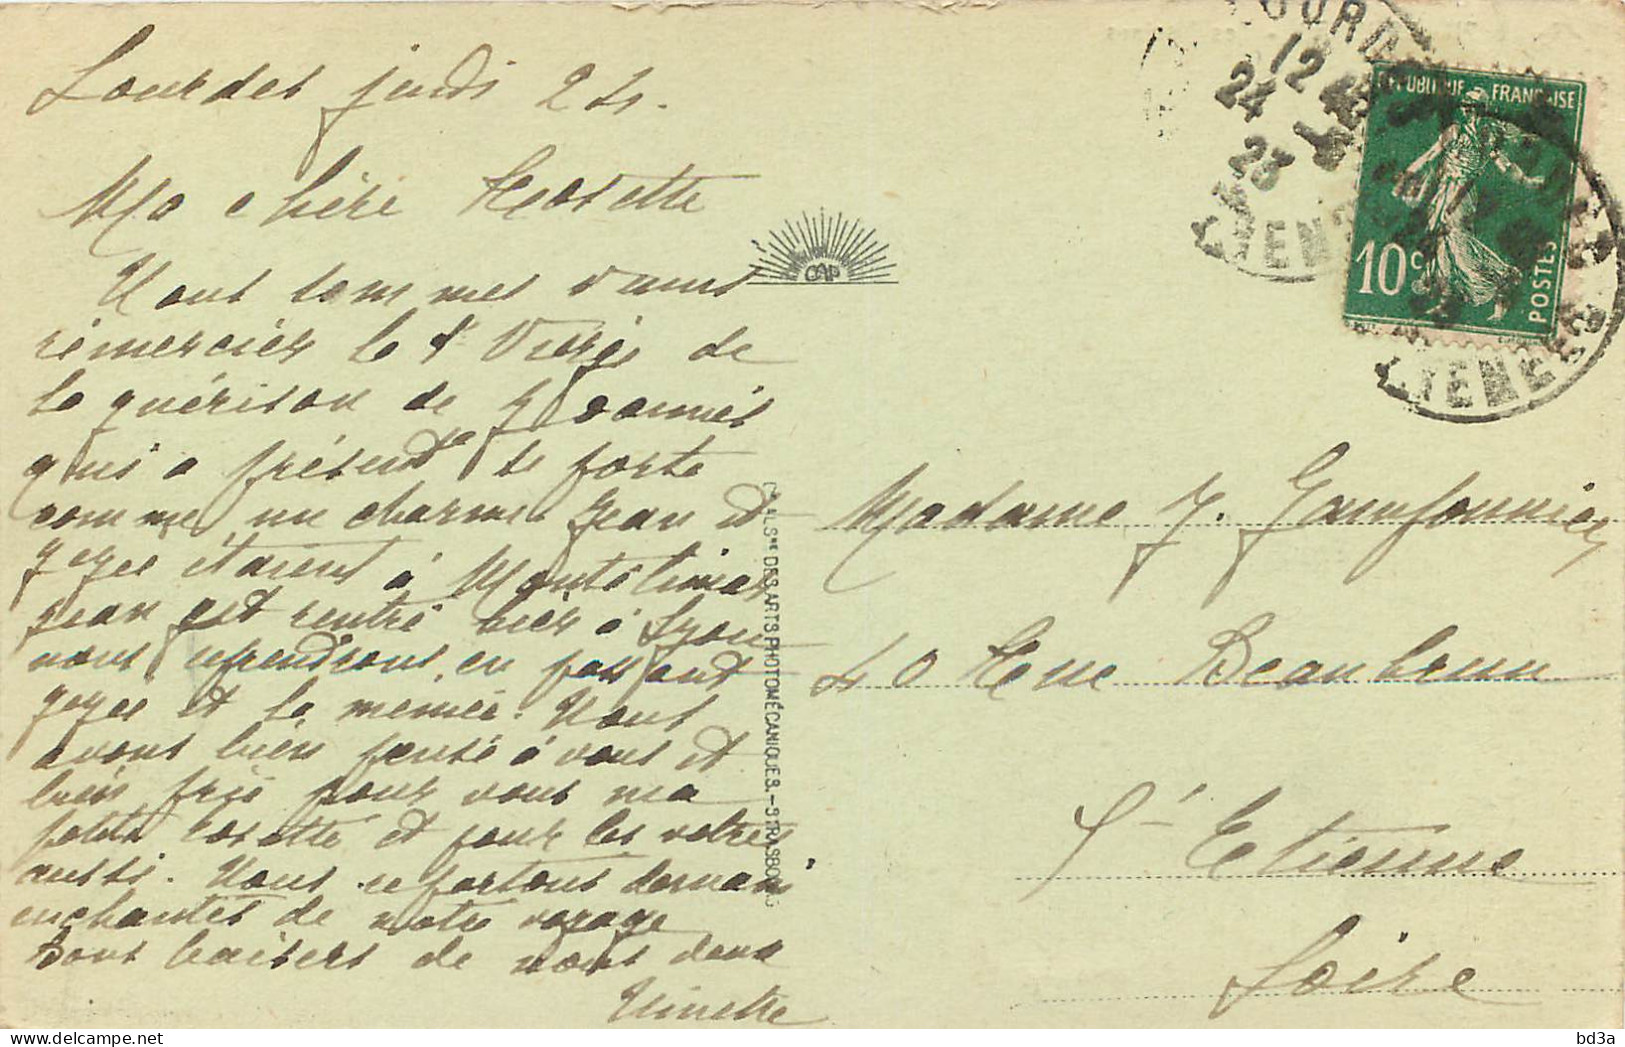 Lourdes jeudi 24.
Ma chère Rosette
Nous sommes venus
remercier la Ste Vierge de
la guérison de Joannès
qui a présent se porte
comme un charme Jean et
zezee étaient à Montelimar
Jean est rentré hier à Lyon
nous reprendrons en passant
zezee et la memée. Nous
avons bien pensé à vous et
bien prié pour vous ma
petite Rosette et pour les votres
aussi. Nous repartons demain
enchantés de notre voyage
Bons baisers de nous deux
Ninette
CAP
Cie ALSne DES ARTS PHOTOMÉCANIQUES.-STRASBOURG
LOURDES
12 45
24
23
PYRENEES
RÉPUBLIQUE FRANÇAISE
10c
POSTES
PYRENEES
Madame J.
40 Rue Beaubrun
St Etienne
Loire
bd3a